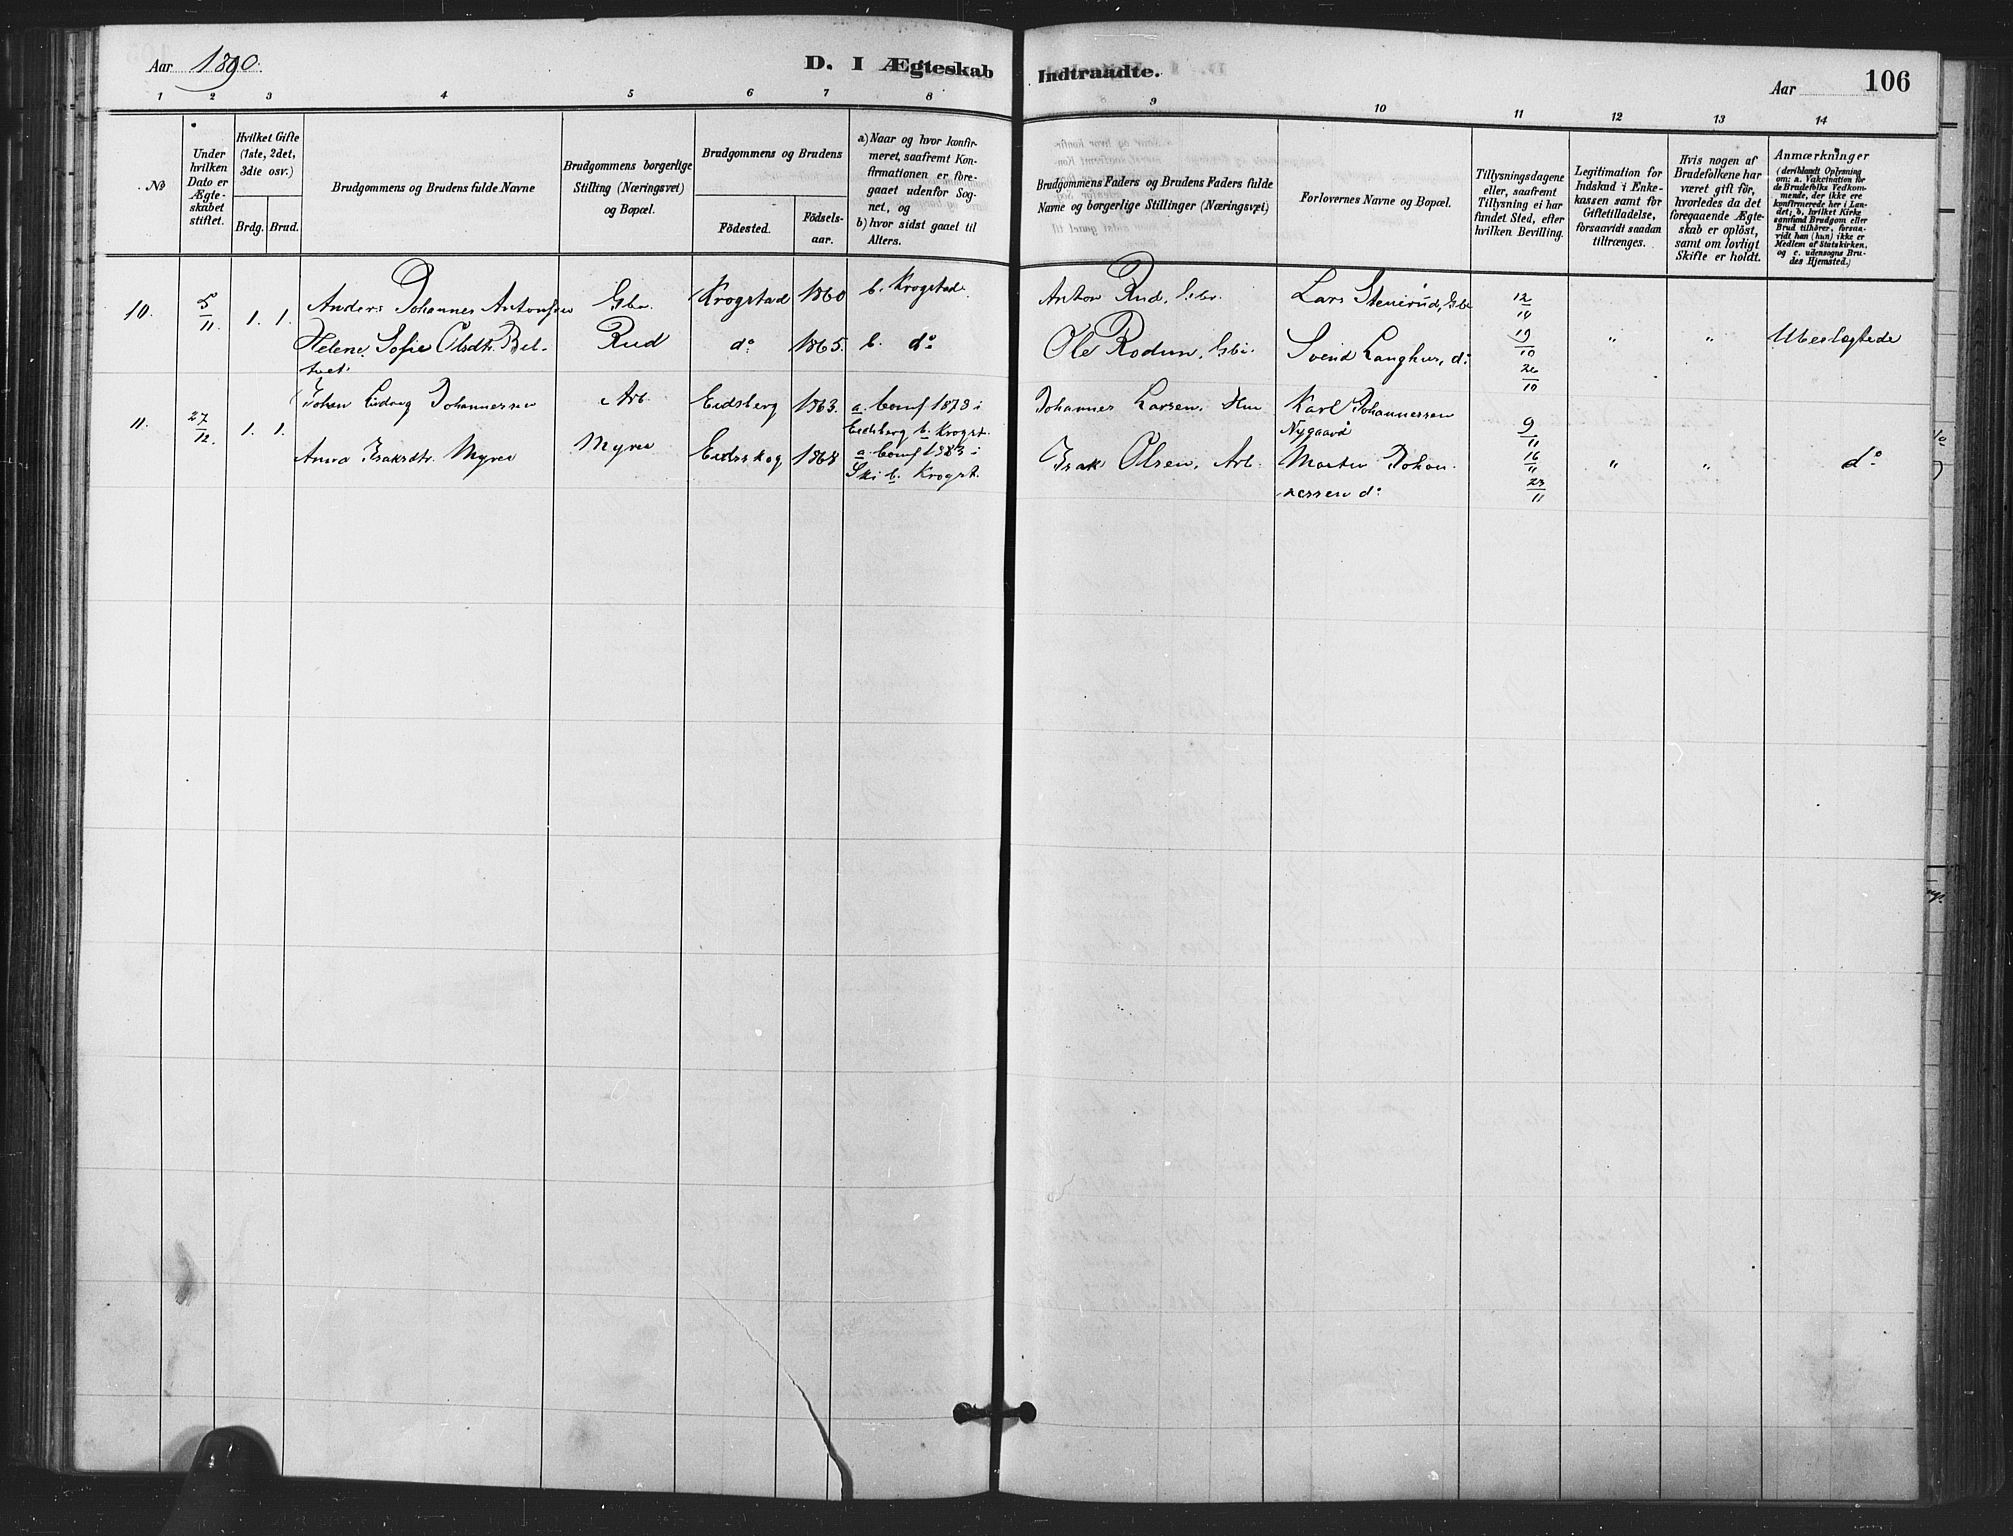 Aar 1890.
D. I Ægteskab
Indtraadte.
Aar
106
1 2 3 4 5 6 7 8 9 10 11 12 13 14
No
Under
hvilken
Dato er
Ægte-
skabet
stiftet.
Hvilket Gifte
(1ste, 2det,
3die osv.)
Brdg. Brud.
Brudgommens og Brudens fulde Navne
Brudgommens borgerlige
Stilling (Næringsvei)
og Bopæl.
Brudgommens og Brudens
Födested.
Födsels-
aar.
a) Naar og hvor konfir-
meret, saafremt Kon-
firmationen er fore-
gaaet udenfor Sog-
net, og
b) hvor sidst gaaet til
Alters.
Brudgommens Faders og Brudens Faders fulde
Navne og borgerlige Stillinger (Næringsvei)
Forlovernes Navne og Bopæl.
Tillysningsdagene
eller, saafremt
Tillysning ei har
fundet Sted, efter
hvilken Bevilling.
Legitimation for
Indskud i Enke-
kassen samt for
Giftetilladelse,
forsaavidt saadan
tiltrænges.
Hvis nogen af
Brudefolkene har
været gift för,
hvorledes da det
foregaaende Ægte-
skab er oplöst,
samt om lovligt
Skifte er holdt.
Anmærkninger
(deriblandt Oplysning
om: a. Vakcination for
de Brudefolks Vedkom-
mende, der ikke ere
konfirmerede her i Lan-
det; b. hvilket Kirke
samfund Brudgom eller
Brud tilhörer, forsaa-
vidt han (hun) ikke er
Medlem af Statskirken,
og c. udensogns Bru-
des Hjemsted.)
10. 5/11. 1. 1. Anders Johannes Antonsen Gbr. Krogstad 1860 b. Krogstad. Anton Rud, Gbr. Lars Stenerud, Gbr 12/10
Helene Sofie Olsdtr. Bel- Rud do 1865. b. do Ole Rodum, Gbr. Svend Langhus, do 19/10 " " Ubeslægtede
tvet 26/10
11. 27/12. 1. 1. Johan Ludvig Johannessen Arb. Eidsberg 1863. a. Conf 1878 i Johannes Larsen, Hm Karl Johannessen
Eidsberg b. Krogst. Nygaard 9/11
Anna Isaksdtr. Myrer Myrer Eidsskog 1868 a. Conf 1883 i Isak Olsen, Arb. Morten Johan 16/11 " " do
Ski b. Krogst. nessen do 23/11